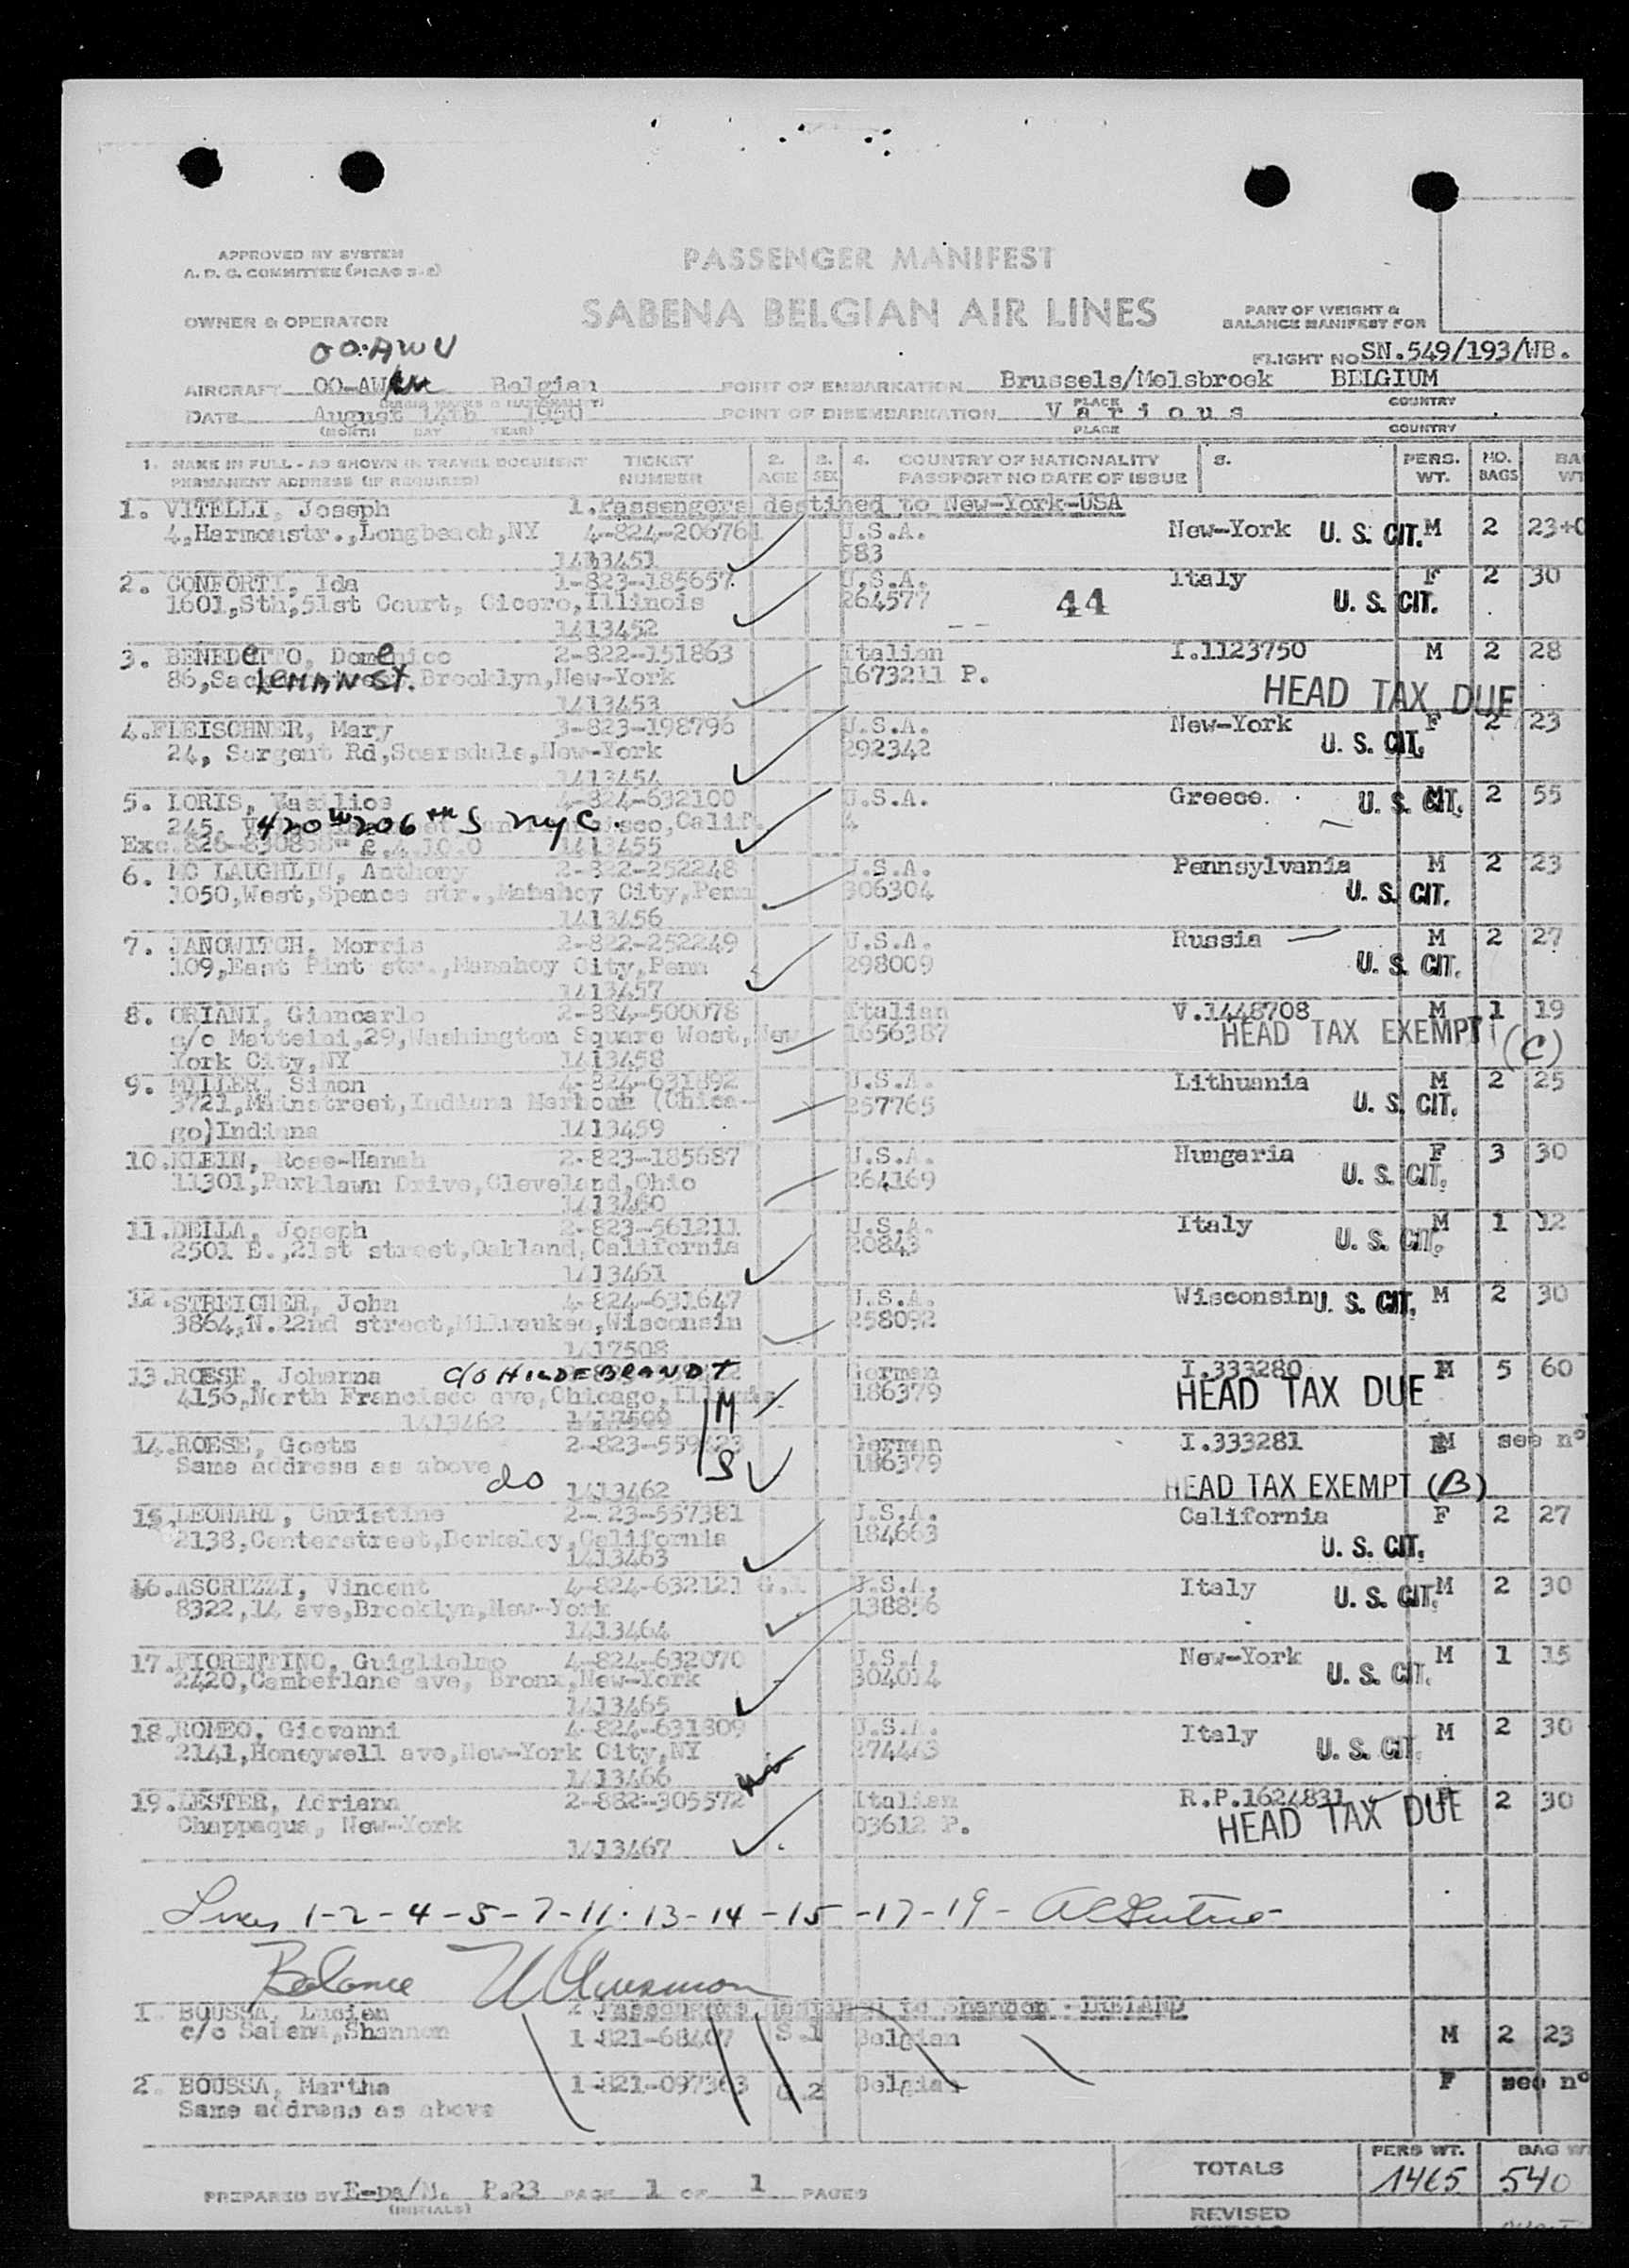 APPROVED BY SYSTEM
A. D. C. COMMITTEE (PICAO S-2)
PASSENGER MANIFEST
SABENA BELGIAN AIR LINES
OWNER & OPERATOR
OO.AWV
PART OF WEIGHT &
BALANCE MANIFEST FOR
FLIGHT NO SN.549/193/WB.
AIRCRAFT OO-AW Belgian POINT OF EMBARKATION Brussels/Melsbroek BELGIUM
PLACE COUNTRY
DATE August 14th 1950 POINT OF DISEMBARKATION Various
(MONTH DAY YEAR) PLACE COUNTRY
1. NAME IN FULL - AS SHOWN IN TRAVEL DOCUMENT TICKET 2. 3. 4. COUNTRY OF NATIONALITY 5. PERS. NO. BA
PERMANENT ADDRESS (IF REQUIRED) NUMBER AGE SEX PASSPORT NO DATE OF ISSUE WT. BAGS WT
1. VITELLI, Joseph 1.Passengers destined to New-York-USA
4,Harmonstr.,Longbeach,NY 4-824-206761 U.S.A. New-York U. S. CIT. M 2 23+0
1413451 583
2. CONFORTI, Ida 1-823-185657 U.S.A. Italy F 2 30
1601,Sth,51st Court, Cicero,Illinois 264577 44 U. S. CIT.
1413452
3. BENEDeTTO, Domenico 2-822-151863 Italian I.1123750 M 2 28
86, LEMAN ST. Brooklyn,New-York 1673211 P.
1413453 HEAD TAX DUE
4.FLEISCHNER, Mary 3-823-198796 U.S.A. New-York F 2 23
24, Sargent Rd,Scarsdale,New-York 292342 U. S. CIT.
1413454
5. LORIS, Vasilios 4-824-632100 U.S.A. Greece. U. S. CIT. 2 55
245, 420 W 206 th S NYC. Calif. 4
Exc.826-830858 1413455
6. MC LAUGHLIN, Anthony 2-822-252248 U.S.A. Pennsylvania M 2 23
1050,West,Spence str.,Mahahoy City,Penn 306304 U. S. CIT.
1413456
7. JANOWITCH, Morris 2-822-252249 U.S.A. Russia M 2 27
109,East Pint str.,Manahoy City,Penn 298009 U. S. CIT.
1413457
8. ORIANI, Giancarlo 2-884-500078 Italian V.1448708 M 1 19
c/o Matteini,29,Washington Square West,New 1656387 HEAD TAX EXEMPT (C)
York City,NY 1413458
9. MILLER, Simon 4-824-631892 U.S.A. Lithuania M 2 25
3721,Mainstreet,Indiana Harbour (Chica- 257765 U. S. CIT.
go)Indiana 1413459
10.KLEIN, Rose-Hanah 2-823-185687 U.S.A. Hungaria F 3 30
11301,Parklawn Drive,Cleveland,Ohio 264169 U. S. CIT.
1413460
11.DELLA, Joseph 2-823-561211 U.S.A. Italy M 1 12
2501 E.,21st street,Oakland,California 20843 U. S. CIT.
1413461
12.STREICHER, John 4-824-631647 U.S.A. Wisconsin U. S. CIT. M 2 30
3864,N.22nd street,Milwaukee,Wisconsin 258092
1417508
13.ROESE, Johanna C/O HILDEBRANDT German I.333280 5 60
4156,North Francisco ave,Chicago,Illinois M 186379 HEAD TAX DUE
1413462
14.ROESE, Goetz 2-823-559823 German I.333281 M see n°
Same address as above S 186379
do 1413462 HEAD TAX EXEMPT (B)
15.LEONARD, Christine 2-823-557381 U.S.A. California F 2 27
2138,Centerstreet,Berkeley,California 184663 U. S. CIT.
1413463
16.ASCRIZZI, Vincent 4-824-632121 U.S.A. Italy U. S. CIT. M 2 30
8322,14 ave,Brooklyn,New-York 138856
1413464
17.FIORENTINO, Guiglielmo 4-824-632070 U.S.A. New-York M 1 15
2420,Camberlane ave, Bronx,New-York 304014 U. S. CIT.
1413465
18.ROMEO, Giovanni 4-824-631309 U.S.A. Italy M 2 30
2141,Honeywell ave,New-York City,NY 274443 U. S. CIT.
1413466
19.LESTER, Adriana 2-882-305572 Italian R.P.1624831 F 2 30
Chappaqua, New-York 03612 P. HEAD TAX DUE
1413467
Lines 1-2-4-5-7-11-13-14-15-17-19-
Balance
1. BOUSSA, Lucien 2 Passengers destined to Shannon - IRELAND
c/o Sabena,Shannon 1-821-68407 S.1 Belgian M 2 23
2. BOUSSA, Martha 1-821-097363 .2 Belgian F see n°
Same address as above
TOTALS PERS WT. 1465 BAG W 540
PREPARED BY E-pa/M. P.23 PAGE 1 OF 1 PAGES
(INITIALS)
REVISED